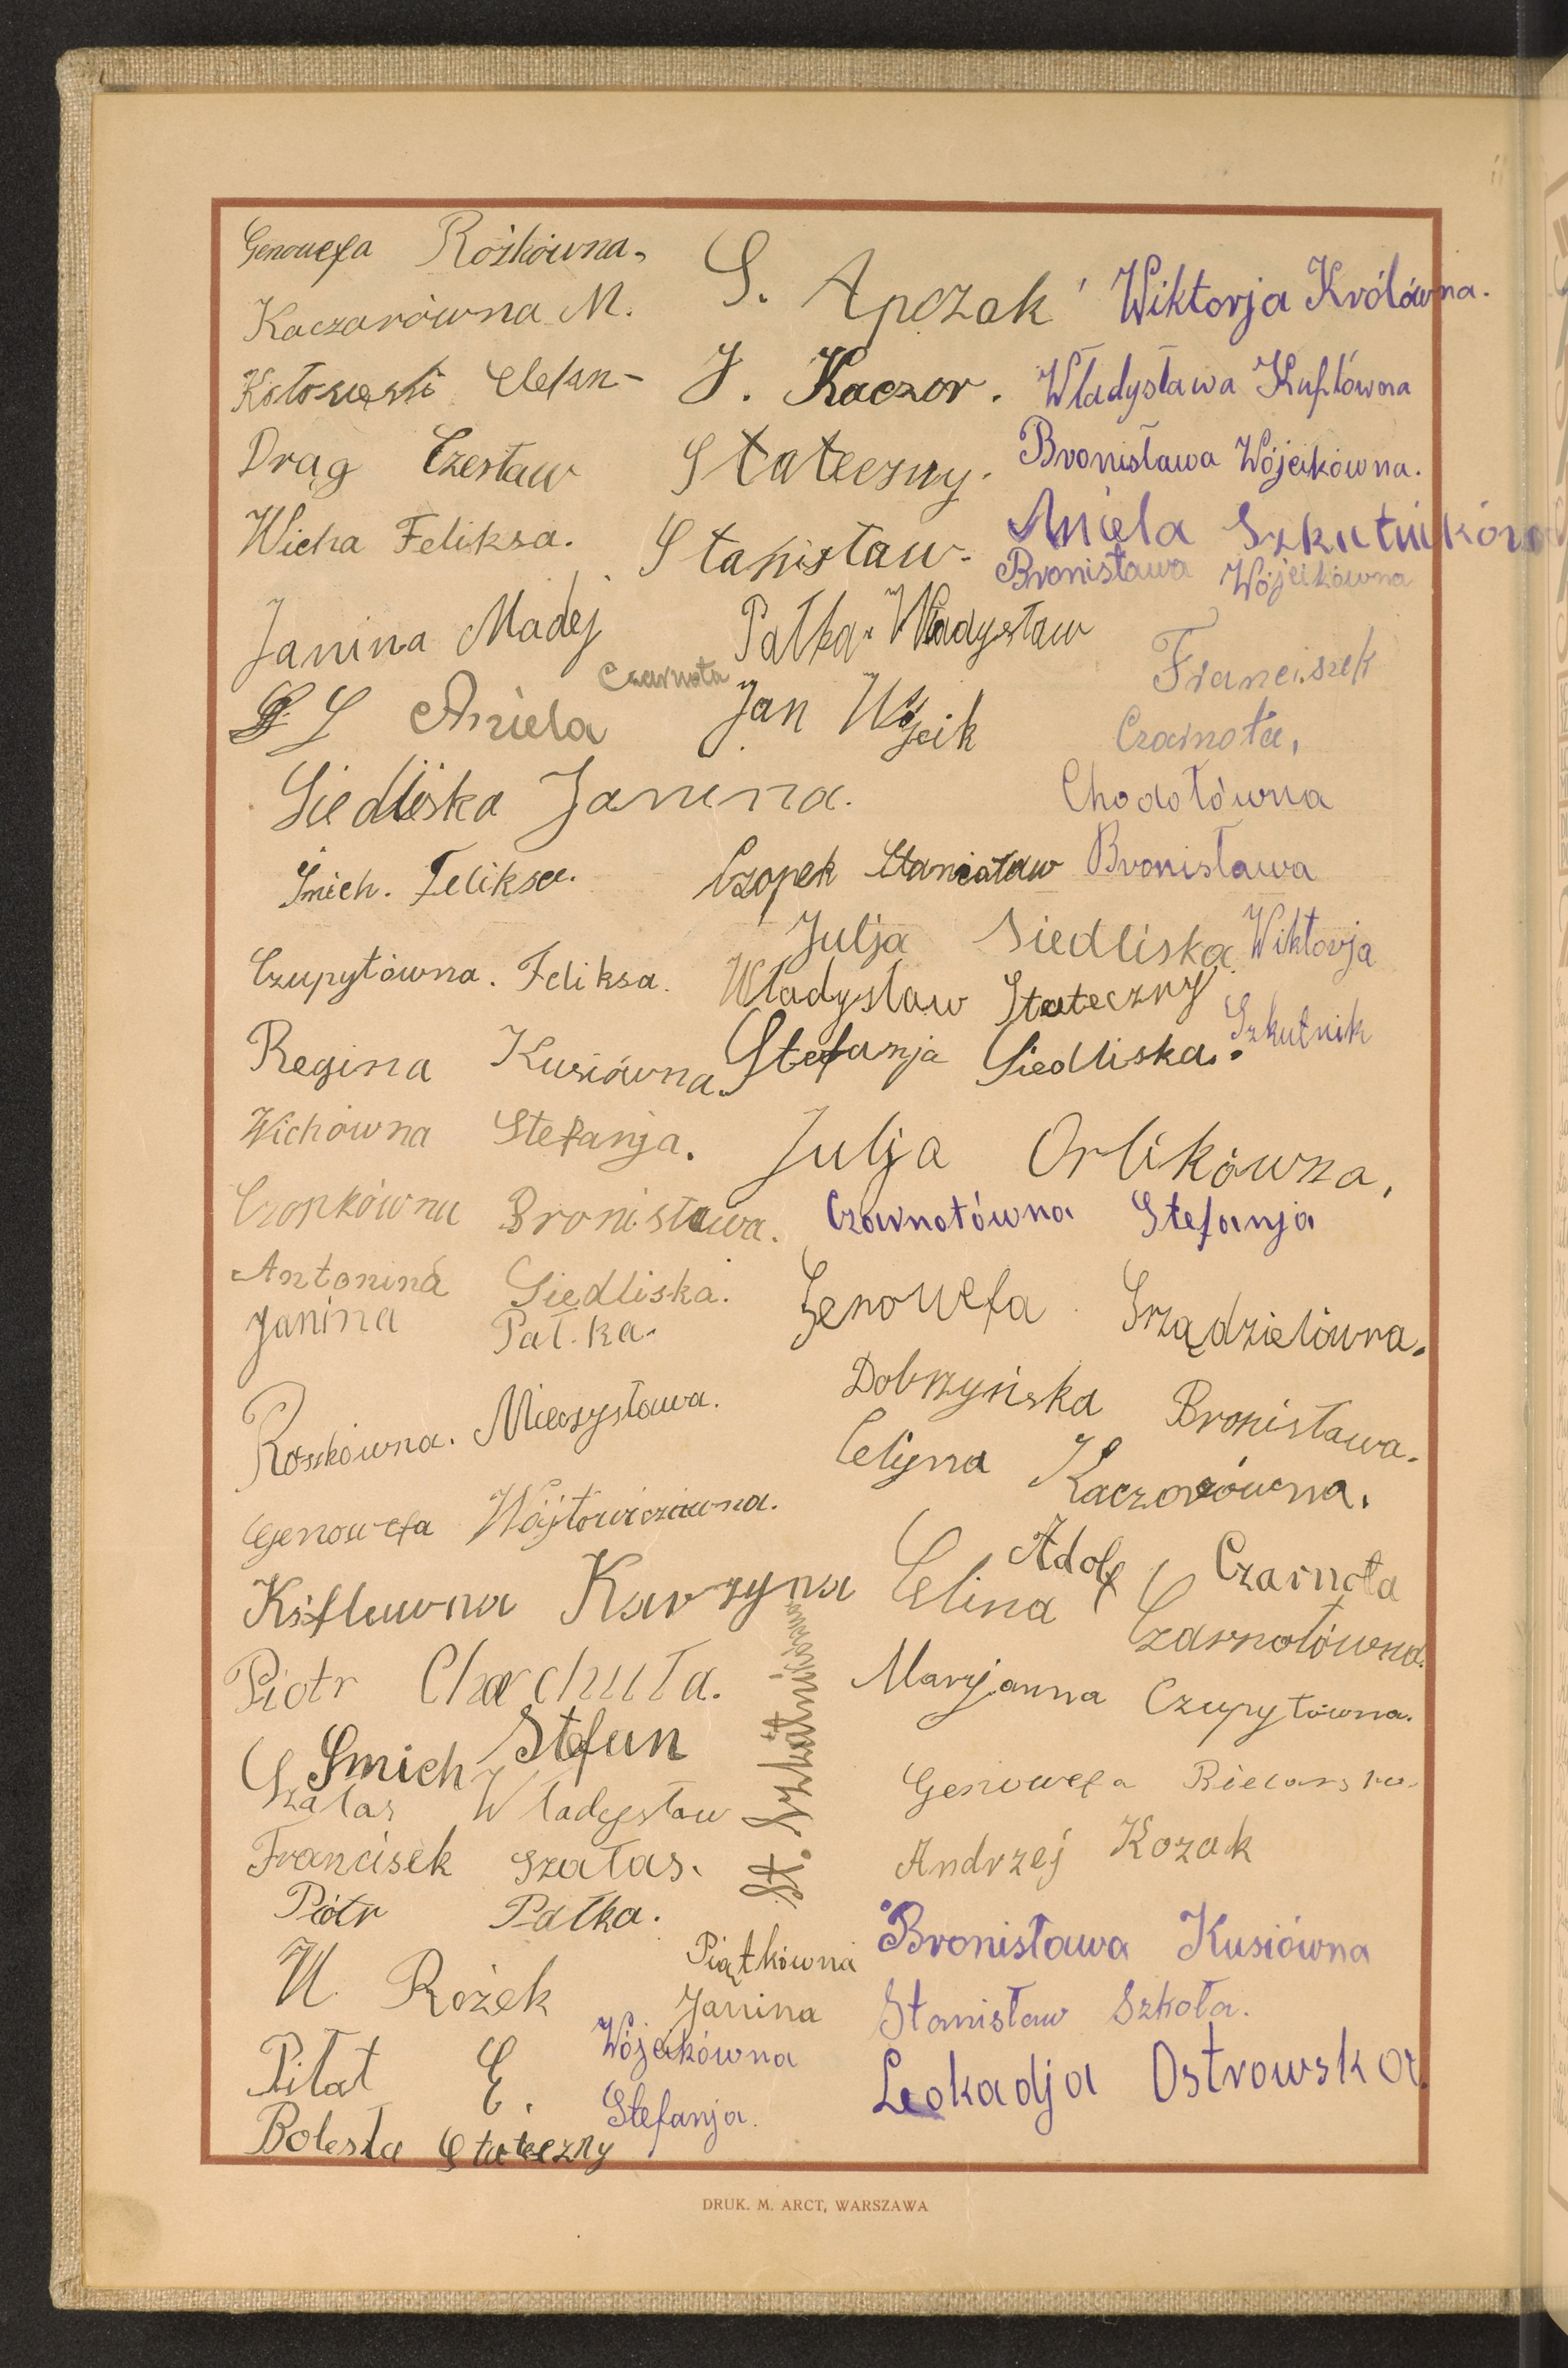 Genowefa Rożkówna.
Kaczorówna M.
Drąg Czesław
Wicha Feliksa.
Janina Madej
Aniela Czarnota
Siedliska Janina.
Śmich. Feliksa.
Czupytówna. Feliksa.
Regina Kusiówna.
Wichówna Stefanja.
Czopkówna Bronisława.
Antonina Siedliska.
Janina Pałka.
Roszkówna. Mieczysława.
Genowefa Wójtowiczówna.
Piotr Chachuła.
Smich Stefan
Szałas Władysław
Francisek Szałas.
Piotr Pałka.
W. Rożek
Piłat E.
Bolesła Stateczny
S. Apczak
J. Kaczor.
Stateczny.
Stanisław.
Pałka Władysław
Jan Wójcik
Czopek Stanisław
Julja Siedliska
Władysław Stateczny
Stefanja Siedliska.
Julja Orlikówna.
Czarnotówna Stefanja
Genowefa Grządzielówna.
Dobrzyńska Bronisława.
Celyna Kaczorówna.
Adolf Czarnota
Celina Czarnotówna.
Maryjanna Czupytówna.
Genowefa
Andrzej Kozak
St. Szkutnikówna
Piątkówna
Janina
Wójcikówna
Stefanja.
Bronisława Kusiówna
Stanisław Szkoła.
Leokadja Ostrowska.
Wiktorja Królówna.
Władysława Kuflówna
Bronisława Wójcikówna.
Aniela Szkutników
Bronisława Wójcikówna
Franciszek
Czarnota,
Chodołówna
Bronisława
Wiktorja
Szkutnik
DRUK. M. ARCT, WARSZAWA